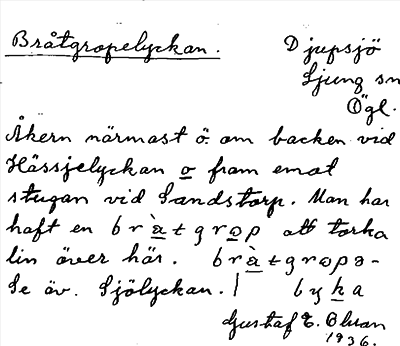 Bråtgropelyckan.
Djupsjö
Ljung sn
Ögl.
Åkern närmast ö. om backen vid
Hässjelyckan o fram emot
stugan vid Sandstorp. Man har
haft en bràtgrop att torka
lin över här. bràtgropə-
Se äv. Sjölyckan. | lyka
Gustaf E. Olsson
1936.